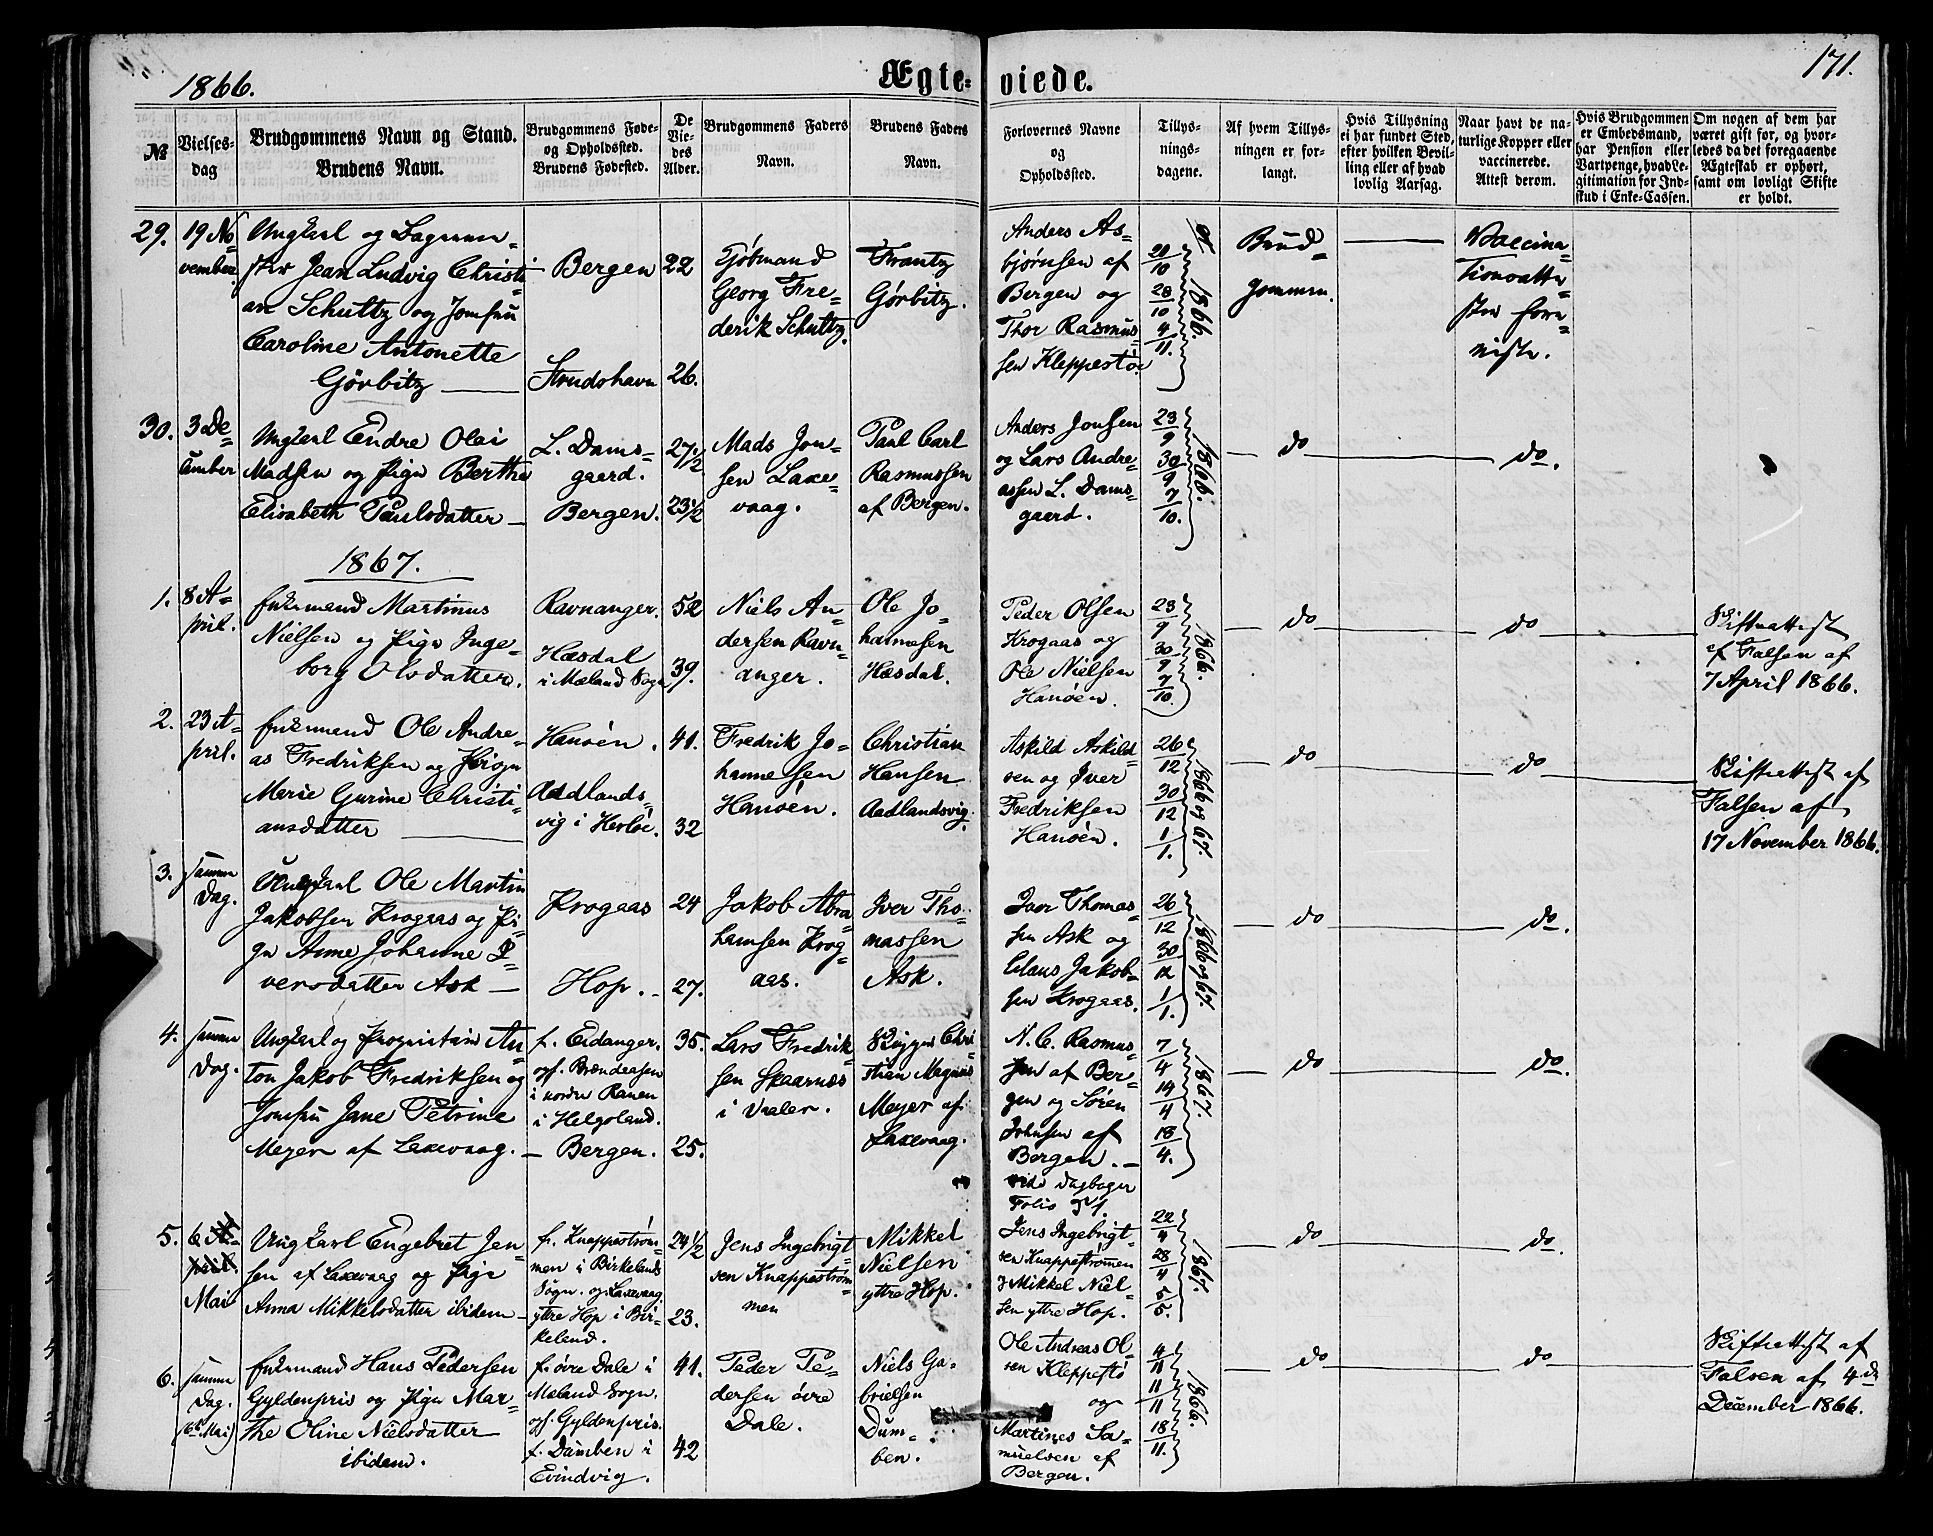 1866.
Ægte-
viede.
171.
№
Vielses-
dag
Brudgommens Navn og Stand.
Brudens Navn.
Brudgommens Føde-
og Opholdssted.
Brudens Fødested.
De
Vie-
des
Alder.
Brudgommens Faders
Navn.
Brudens Faders
Navn.
Forlovernes Navne
og
Opholdssted.
Tillys-
nings-
dagene.
Af hvem Tillys-
ningen er for-
langt.
Hvis Tillysning
ei har fundet Sted,
efter hvilken Bevil-
ling eller af hvad
lovlig Aarsag.
Naar havt de na-
turlige Kopper eller
vaccinerede.
Attest derom.
Hvis Brudgommen
er Embedsmand,
har Pension eller
Vartpenge, hvad Le-
gitimation for Ind-
skud i Enke-Cassen.
Om nogen af dem har
været gift før, og hvor-
ledes da det foregaaende
Ægteskab er ophørt,
samt om lovligt Skifte
er holdt.
29.
19 No-
vember.
Ungkarl og
Jean Ludvig Christi-
an Schultz og Jomfru
Caroline Antonette
Görbitz
Bergen
Strudshavn
22
26.
Kjöbmand
Georg Fre-
derik Schultz.
Frantz
Görbitz.
Anders As-
bjørnsen af
Bergen og
Thor Rasmus-
sen Kleppestö.
28/10
28/10
4/11.
1866.
Brud-
gommen.
Vaccina-
tionsatte-
ster fore-
viste.
30.
3 De-
cember
Ungkarl Endre Olai
Madsen og Pige Berthe
Elisabeth Paulsdatter
L. Dams-
gaard.
Bergen.
27 1/2
23 1/2
Mads Jon-
sen Laxe-
vaag.
Paul Carl
Rasmussen
af Bergen.
Anders Jonsen
og Lars Andre-
assen L. Dams-
gaard.
23/9
30/9
7/10.
1866.
do
do.
1867.
1.
8 A-
pril.
Enkemand Martinus
Nielsen og Pige Inge-
borg Olsdatter.
Ravnanger.
Hæsdal
i Mæland Sogn
52
39.
Niels An-
dersen Ravn-
anger.
Ole Jo-
hannesen
Hæsdal.
Peder Olsen
Krogaas og
Ole Nielsen
Hanöen.
23/9
30/9
7/10
1866.
do
do
Skifteattest
af Falsen af
7 April 1866.
2.
23 A-
pril.
Enkemand Ole Andre-
as Fredriksen og Pige
Marie Gurine Christi-
ansdatter
Hanöen.
Aadlands-
vig i Herlöe.
41.
32
Fredrik Jo-
hannesen
Hanöen.
Christian
Hansen
Aadlandsvig.
Askild Askild-
sen og Iver
Fredriksen
Hanöen.
26/12
30/12
1/1.
1866 og 67.
do
do
Skifteattest af
Falsen af
17 November 1866.
3.
samme
Dag.
Ungkarl Ole Martin
Jakobsen Krogaas og Pi-
ge Anne Johanne I-
versdatter Ask
Krogaas
Hop.
24
27.
Jakob Abra-
hamsen Krog-
aas.
Iver Tho-
massen
Ask.
Iver Thomas-
sen Ask og
Claus Jakob-
sen Krogaas.
26/12
30/12
1/1.
1866 og 67.
do
do.
4.
samme
Dag.
Ungkarl og Proprietair An-
ton Jakob Fredriksen og
Jomfru Jane Petrine
Meyer af Laxevaag.
f. Eidanger.
opf. Brændaasen
i nordre Ranen
i Helgoland.
Bergen.
35.
25.
Lars Fredrik-
sen Skaarnæs
i Vaaler.
Skipper Chri-
stian Magnus
Meyer af
Laxevaag.
N. C. Rasmus-
sen af Ber-
gen og Sören
Johnsen af
Bergen.
vide Dagbogen
Folio
7/4
14/4
18/4.
1867.
do
do.
5.
6 A-
pril.
Mai
Ungkarl Engebret Jen-
sen af Laxevaag og Pige
Anna Mikkelsdatter ibidem
f. Knappeström-
men i Birkelands
Sogn. og Laxevaag
yttre Hop i Bir-
keland.
24 1/2
23.
Jens Ingebrigt-
sen Knappeström-
men
Mikkel
Nielsen
yttre Hop.
Jens Ingebrigt-
sen Knappeströmmen
& Mikkel Niel-
sen yttre Hop.
22/4
28/4
5/5.
1867.
do
do.
6.
samme
Dag.
(6te Mai)
Enkemand Hans Pedersen
Gyldenpris og Pige Mar-
the Oline Nielsdatter
ibidem.
f. övre Dale i
Mæland Sogn.
opf. Gyldenpris.
f. Dumben i
Evindvig.
41.
42
Peder Pe-
dersen övre
Dale.
Niels Ga-
brielsen
Dum-
ben.
Ole Andreas Ol-
sen Kleppestö
og
Martines Sa-
muelsen af
Bergen.
4/11
11/11
18/11.
1866.
do
do
Skifteattest af
Falsen af 4de
December 1866.